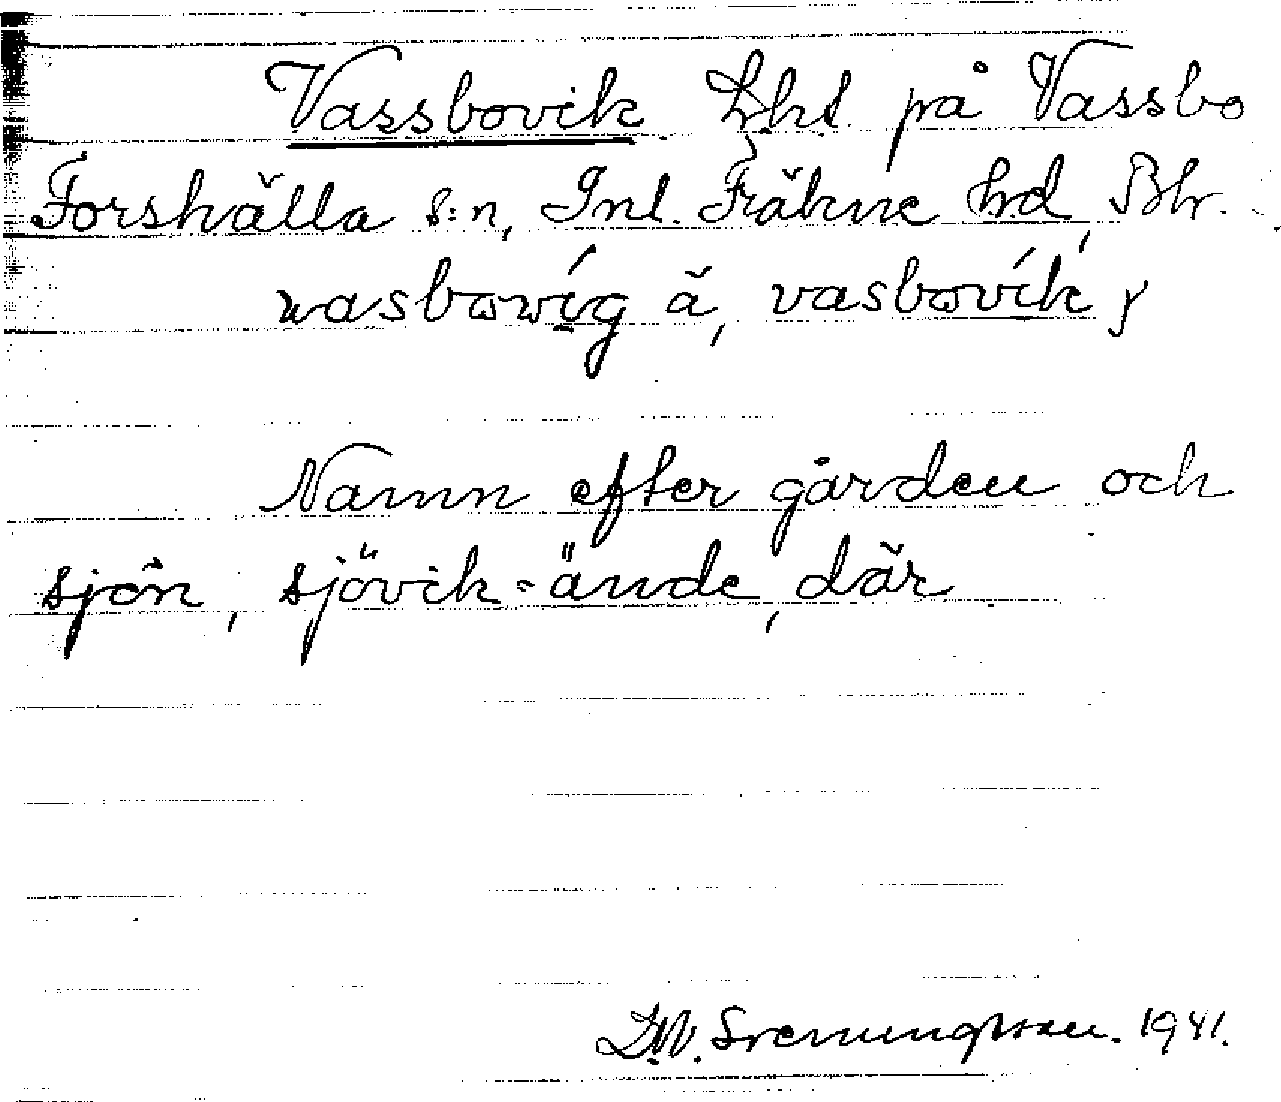 Vassbovik Lht. på Vassbo
Forshälla s:n, Inl. Fräkne hd, Bhr.
wasbowig ä, vasbovik y
Namn efter gården och
sjön, sjövik-ände, där
D.W. Svenungsson. 1941.